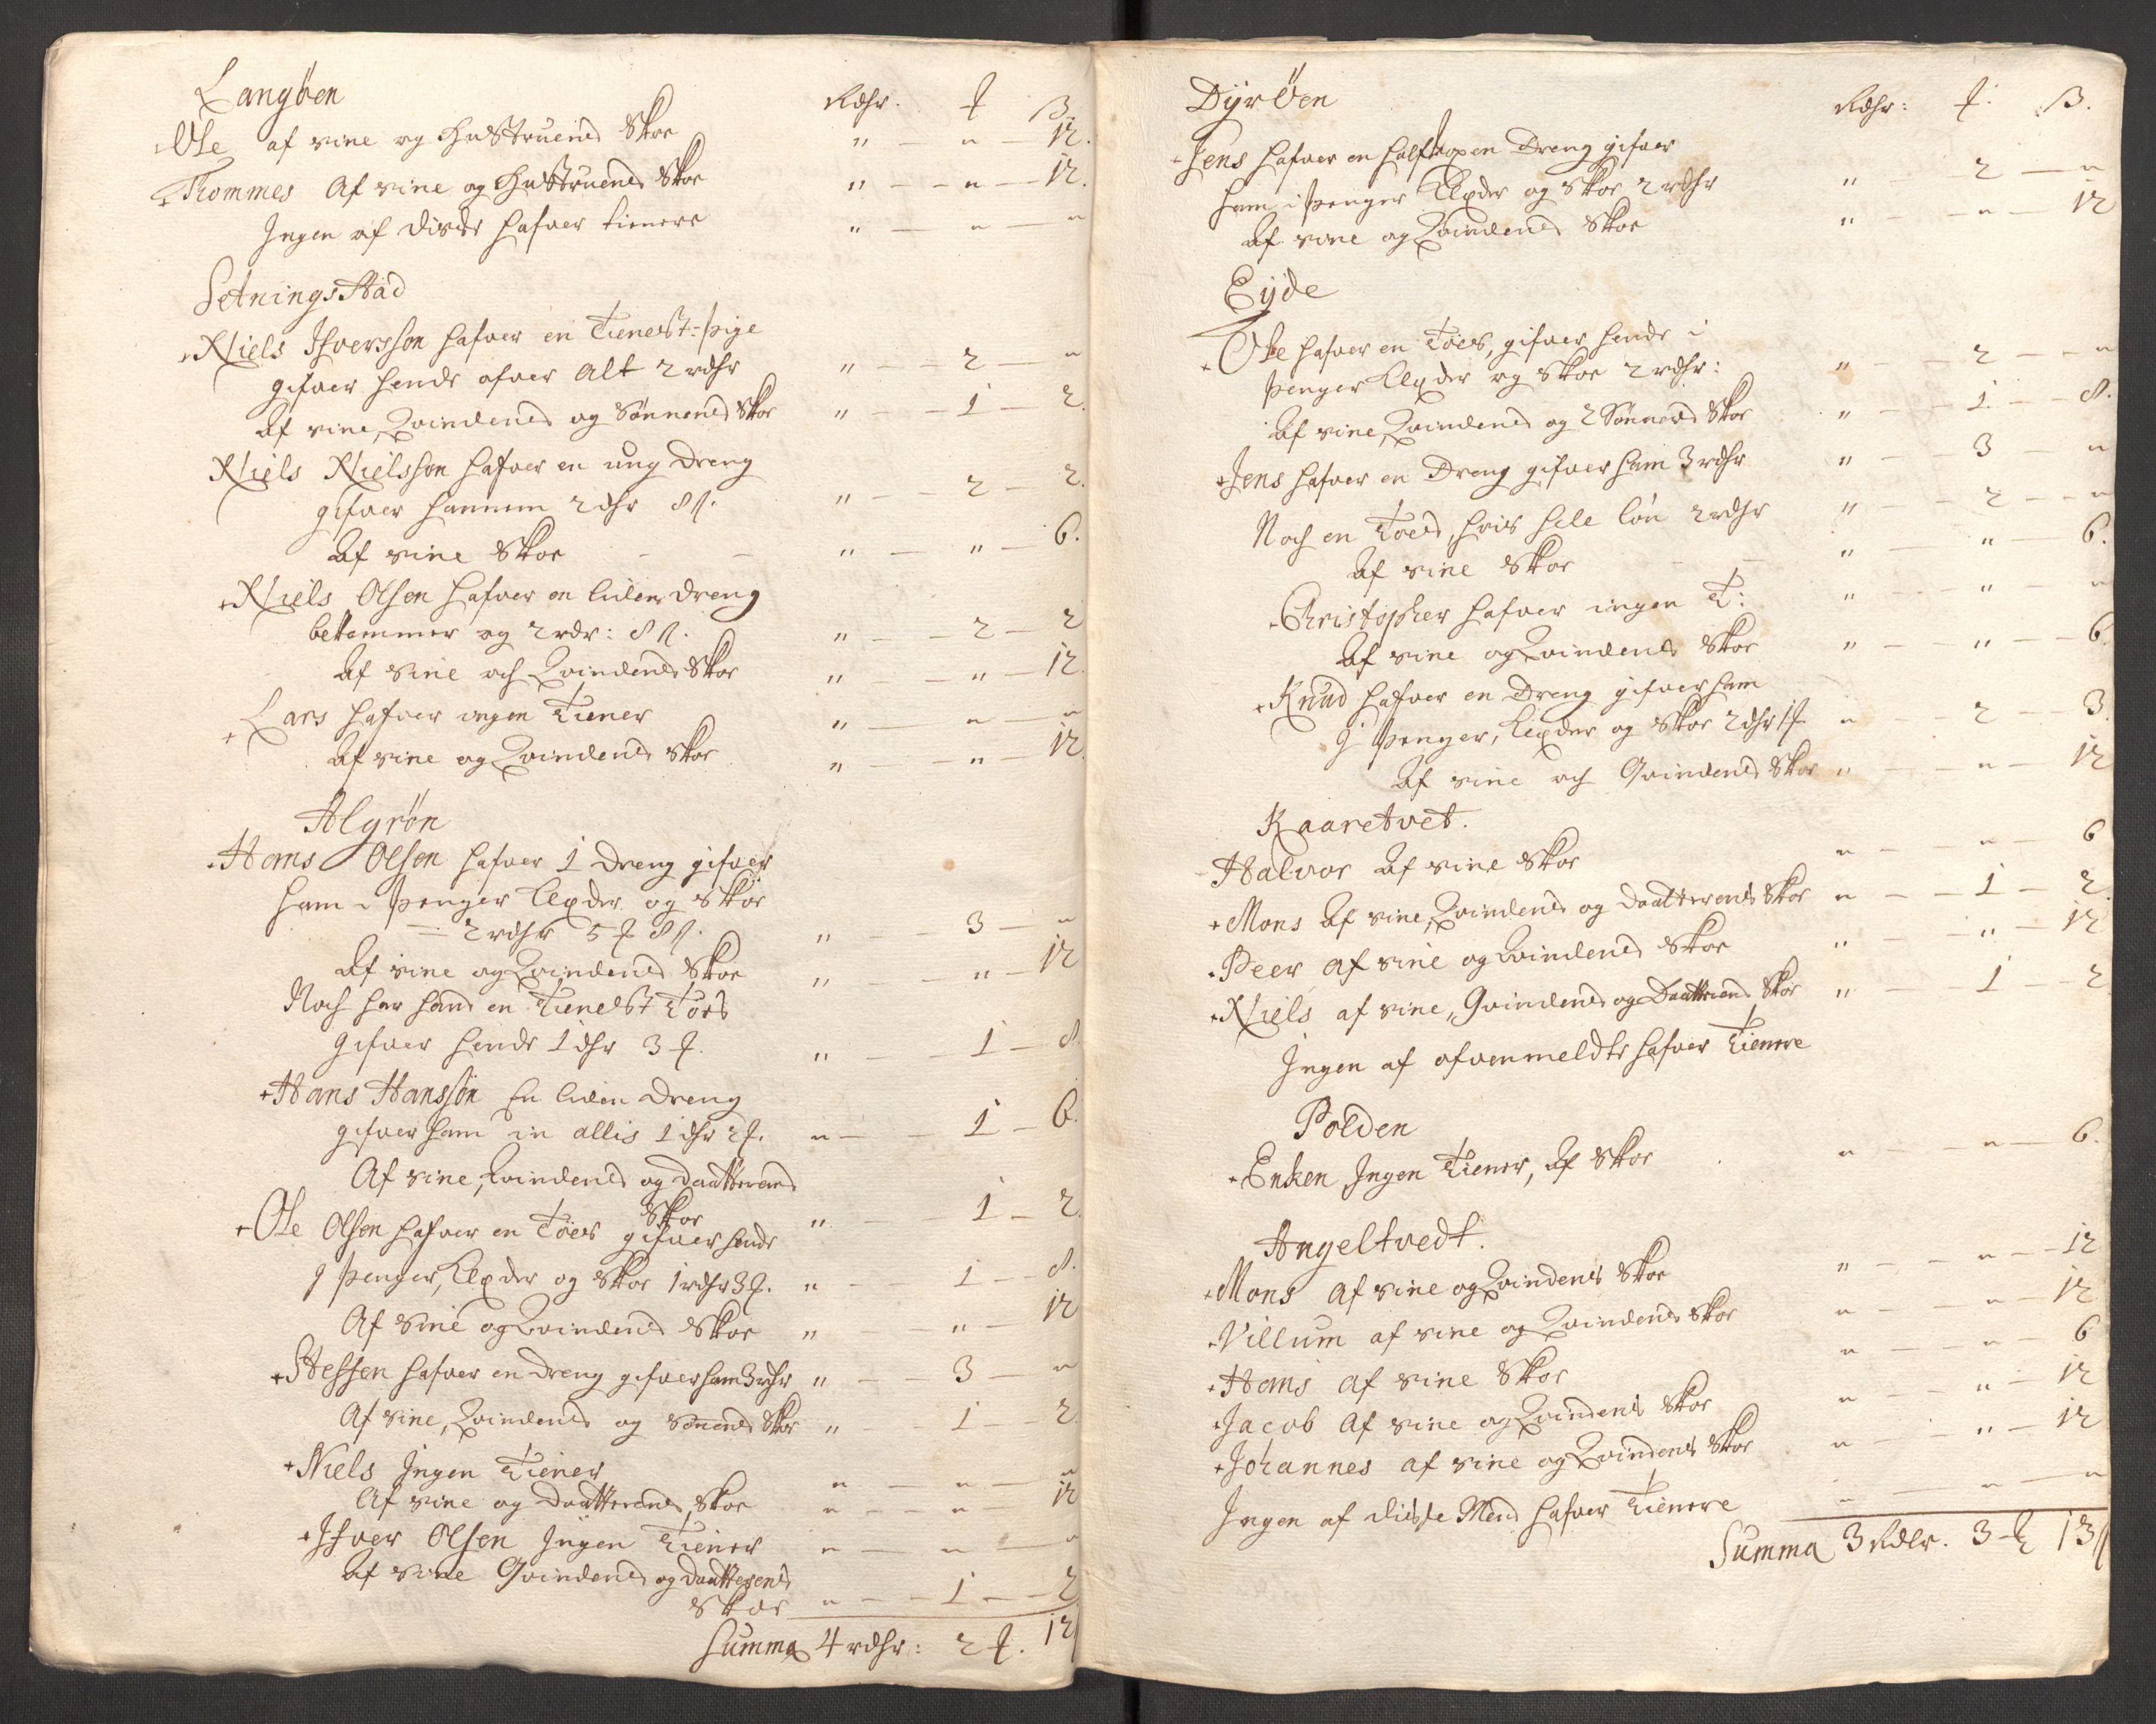 Langøen
Rdhr. ₰ β.
Ole af sine og Hustruens Skoe " — " — 12.
+ Thommes Af sine og Hustruens Skoe " — " — 12.
Ingen af disse hafver tienere " — " — "
SetningsStad
+ Niels Ifversson hafver en Tienest-pige
gifver hende ofver Alt 2 rdhr " — 2 — "
Af sine, Qvindens og Sønnens Skoe " — 1 — 2.
Niels Nielsson hafver en ung Dreng
gifver hannem 2 dhr 8 ß. " — 2 — 2.
Af sine Skoe " — " — 6.
+ Niels Olsen hafver en liden dreng
bekommer og 2 rdr: 8 ß. " — 2 — 2
Af sine och Qvindens Skoe " — " — 12.
+ Lars hafver ingen Tiener " — " — "
Af sine og Qvindens Skoe " — " — 12.
Algrøn
+ Hans Olsen hafver 1 Dreng gifver
ham i penger Klæder og Skoe
2 rdhr 5 ₰ 8 ß. " — 3 — "
Af sine og Qvindens Skoe " — " — 12
Noch har hand en Tienest Tøs
gifver hende 1 dhr 3 ₰. " — 1 — 8
+ Hans Hansson En liden Dreng
gifver ham in allis 1 dhr 2 ₰. " — 1 — 6.
Af sine, Qvindens og daatterens
Skoe " — 1 — 2.
+ Ole Olsen hafver en Tøes gifver hende
I penger, Klæder og Skoe 1 rdhr 3 ₰. " — 1 — 8.
Af sine og Qvindens Skoe " — " — 12
+ Steffen hafver en dreng gifver ham 3 rdhr " — 3 — "
Af sine, Qvindens og sønens Skoe " — 1 — 2.
+ Niels Ingen Tiener " — " — "
Af sine og daatterens Skoe " — " — 12
+ Ifver Olsen Ingen Tiener " — " — "
Af sine Qvindens og daatterens
Skoe " — 1 — 2
Summa 4 rdhr: 2 ₰. 12 ß
Dyrøen
Rdhr: ₰. β.
+ Jens hafver en halfvoxen Dreng gifver
ham i penger Klæder og Skoe 2 rdhr " — 2 — "
Af sine og Qvindens Skoe " — " — 12
Eyde
+ Ole hafver en Tøes, gifver hende i
penger Klæder og Skoe 2 rdhr: " — 2 — "
Af sine, Qvindens og 2 Sønners Skoe " — 1 — 8.
+ Jens hafver en Dreng gifver ham 3 rdhr " — 3 — "
Noch en Toes, hvis hele løn 2 rdhr " — 2 — "
Af sine Skoe " — " — 6.
+ Christopher hafver ingen T: " — " — "
Af sine og Qvindens Skoe " — " — 6.
+ Knud hafver en Dreng gifver ham
I penger, Klæder og Skoe 2 dhr 1 ₰. " — 2 — 3.
Af sine och Qvindens Skoe " — " — 12
Kaaretvet.
Halvor Af sine Skoe " — " — 6
+ Mons Af sine, Qvindens og daatterens Skoe " — 1 — 2.
+ Peer af sine og Qvindens Skoe " — " — 12
+ Niels af sine, Qvindens og Daatterens Skoe " — 1 — 2
Ingen af ofvenmeldte hafver Tienere
Polden
+ Enken Ingen Tiener, Af Skoe " — " — 6.
Angeltvedt.
+ Mons Af sine og Qvindens Skoe " — " — 12
+ Villum af sine og Qvindens Skoe " — " — 12
+ Hans af sine Skoe " — " — 6
+ Jacob Af sine og Qvindens Skoe " — " — 12
+ Johannes af sine og Qvindens Skoe " — " — 12
Ingen af disse Mend hafver Tienere " — " — "
Summa 3 Rdlr. 3 ₰ 13 ß